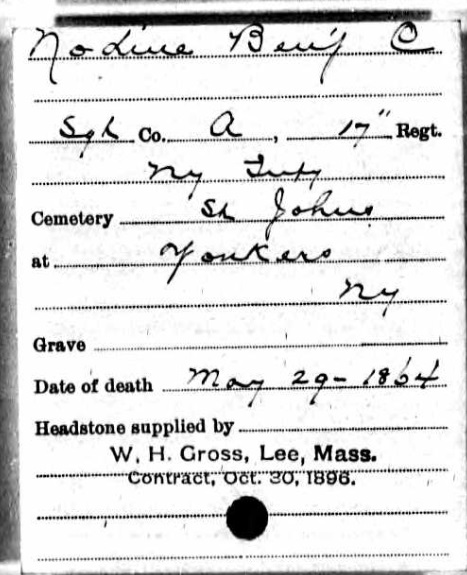 Nodine Benj C
Sgt Co. A, 17" Regt.
NY Infy
Cemetery St Johns
at Yonkers
NY
Grave
Date of death May 29-1864
Headstone supplied by
W. H. Gross, Lee, Mass.
Contract, Oct. 30, 1896.